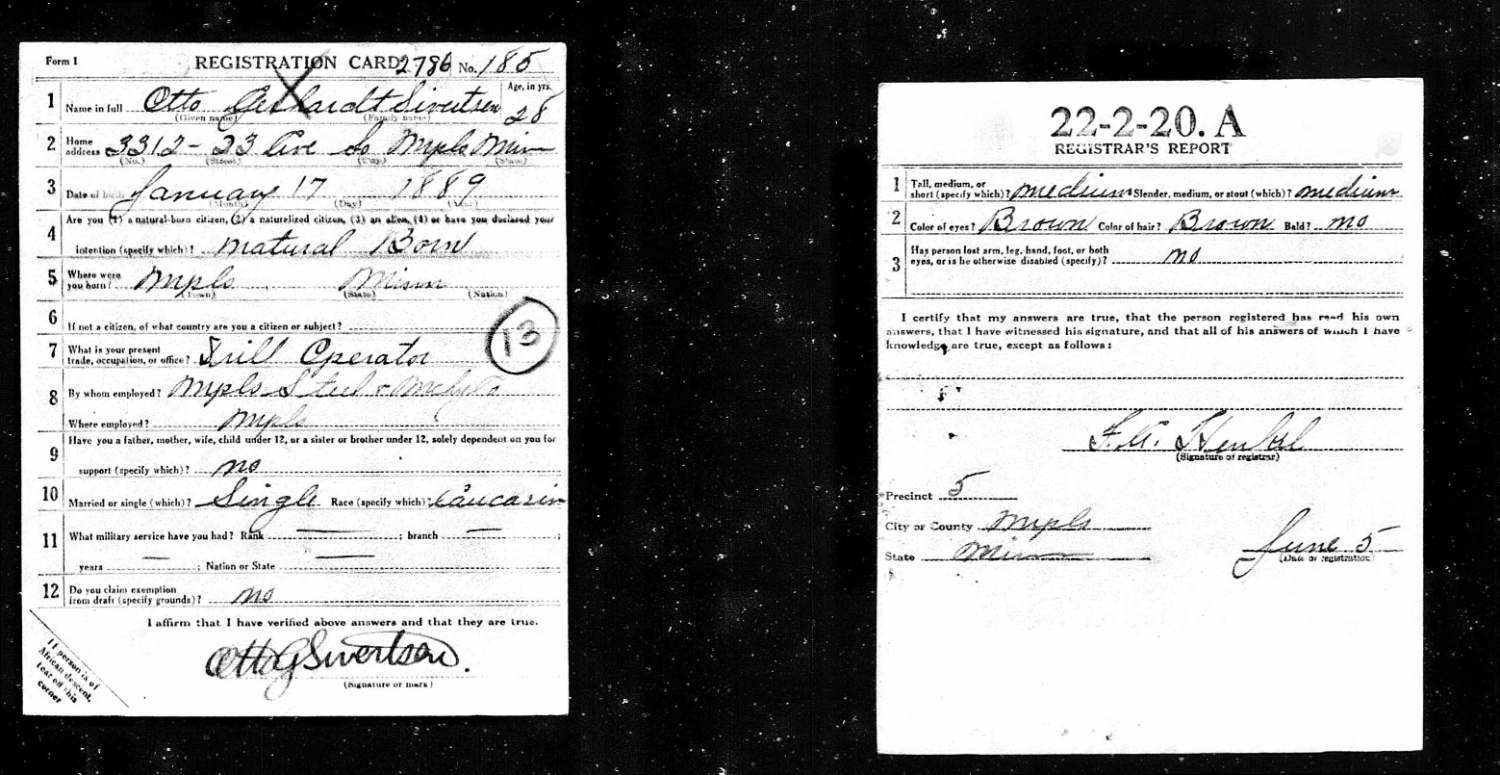 Form 1
REGISTRATION CARD 2786 No. 185
1 Name in full Otto Gerhardt Sivertsen Age, in yrs. 28
(Given name) (Family name)
2 Home address 3312 - 23 Ave So Mpls Minn
(No.) (Street) (City) (State)
3 Date of birth January 17 1889
(Month) (Day) (Year)
4 Are you (1) a natural-born citizen, (2) a naturalized citizen, (3) an alien, (4) or have you declared your
intention (specify which)? Natural Born
5 Where were you born? Mpls Minn
(Town) (State) (Nation)
6 If not a citizen, of what country are you a citizen or subject?
13
7 What is your present trade, occupation, or office? Drill Operator
8 By whom employed? Mpls Steel & Mchy Co
Where employed? Mpls
9 Have you a father, mother, wife, child under 12, or a sister or brother under 12, solely dependent on you for
support (specify which)? no
10 Married or single (which)? Single Race (specify which)? Caucasin
11 What military service have you had? Rank — ; branch — ;
years — ; Nation or State —
12 Do you claim exemption from draft (specify grounds)? no
I affirm that I have verified above answers and that they are true.
Otto G Sivertsen.
(Signature or mark)
If person is of
African descent,
tear off this
corner
22-2-20. A
REGISTRAR'S REPORT
1 Tall, medium, or short (specify which)? medium Slender, medium, or stout (which)? medium
2 Color of eyes? Brown Color of hair? Brown Bald? no
3 Has person lost arm, leg, hand, foot, or both
eyes, or is he otherwise disabled (specify)? no
I certify that my answers are true, that the person registered has read his own
answers, that I have witnessed his signature, and that all of his answers of which I have
knowledge are true, except as follows:
(Signature of registrar)
Precinct 5
City or County Mpls
State Minn
June 5
(Date of registration)